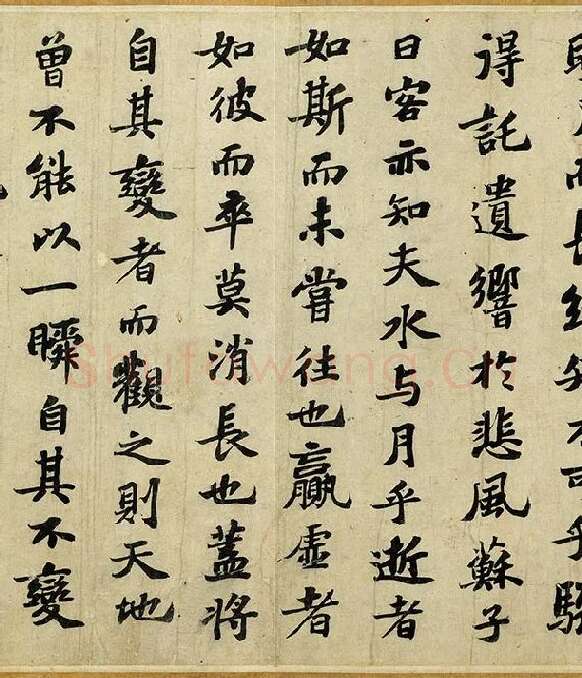 而長終知不可乎驟
得託遺響於悲風蘇子
曰客亦知夫水与月乎逝者
如斯而未嘗往也贏虛者
如彼而卒莫消長也蓋將
自其變者而觀之則天地
曾不能以一瞬自其不變